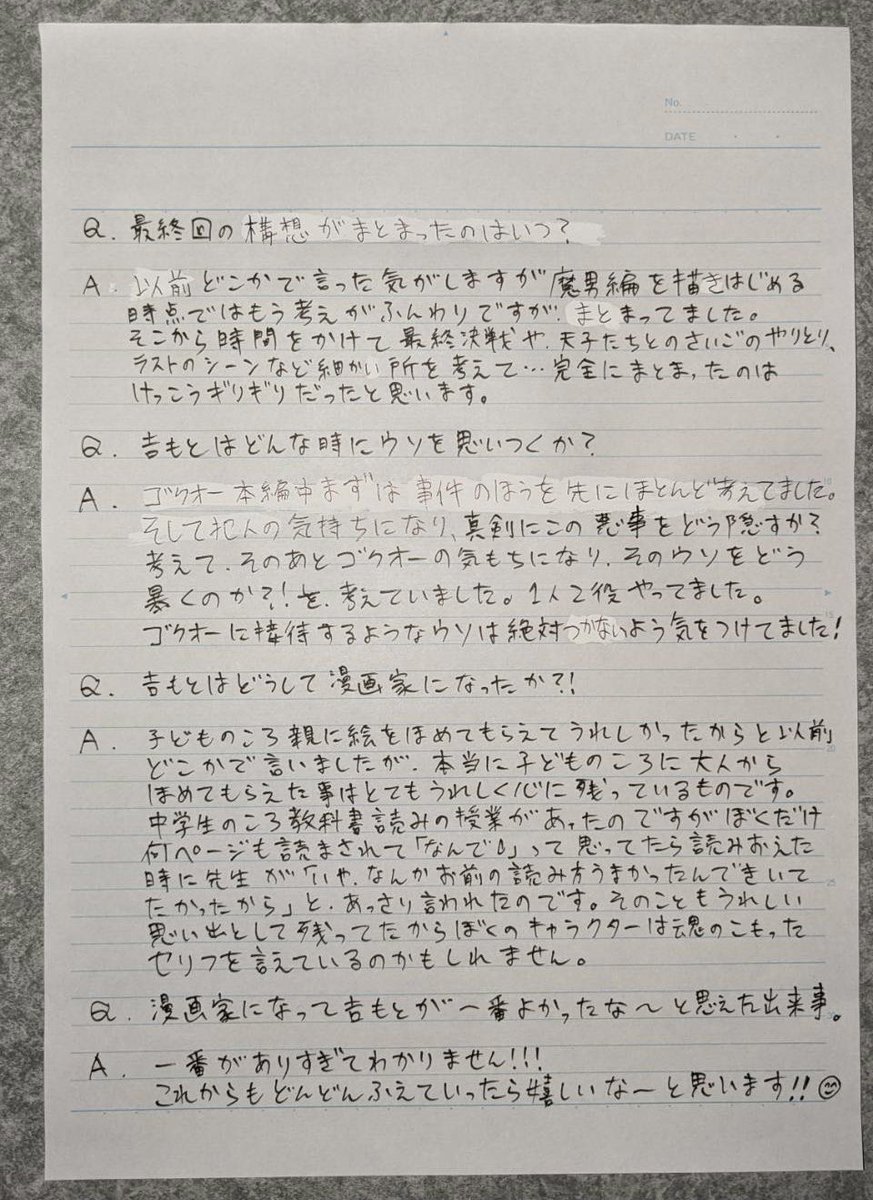 No.
DATE
Q. 最終回の構想がまとまったのはいつ?
A. 以前どこかで言った気がしますが魔男編を描きはじめる
時点ではもう考えがふんわりですが、まとまってました。
そこから時間をかけて最終決戦や、天子たちとのさいごのやりとり、
ラストのシーンなど細かい所を考えて…完全にまとまったのは
けっこうギリギリだったと思います。
Q. 吉もとはどんな時にウソを思いつくか?
A. ゴクオー本編中まずは事件のほうを先にほとんど考えてました。
そして犯人の気持ちになり、真剣にこの悪事をどう隠すか?
考えて、そのあとゴクオーの気もちになり、そのウソをどう
暴くのか?!を、考えていました。1人2役やってました。
ゴクオーに接待するようなウソは絶対つかないよう気をつけてました!
Q. 吉もとはどうして漫画家になったか?!
A. 子どものころ親に絵をほめてもらえてうれしかったからと以前
どこかで言いましたが、本当に子どものころに大人から
ほめてもらえた事はとてもうれしく心に残っているものです。
中学生のころ教科書読みの授業があったのですがぼくだけ
何ページも読まされて「なんで」って思ってたら読みおえた
時に先生が「いや、なんかお前の読み方うまかったんできいて
たかったから」と、あっさり言われたのです。そのこともうれしい
思い出として残ってたからぼくのキャラクターは魂のこもった
セリフを言えているのかもしれません。
Q. 漫画家になって吉もとが一番よかったな〜と思えた出来事。
A. 一番がありすぎてわかりません!!!
これからもどんどんふえていったら嬉しいな〜と思います!!